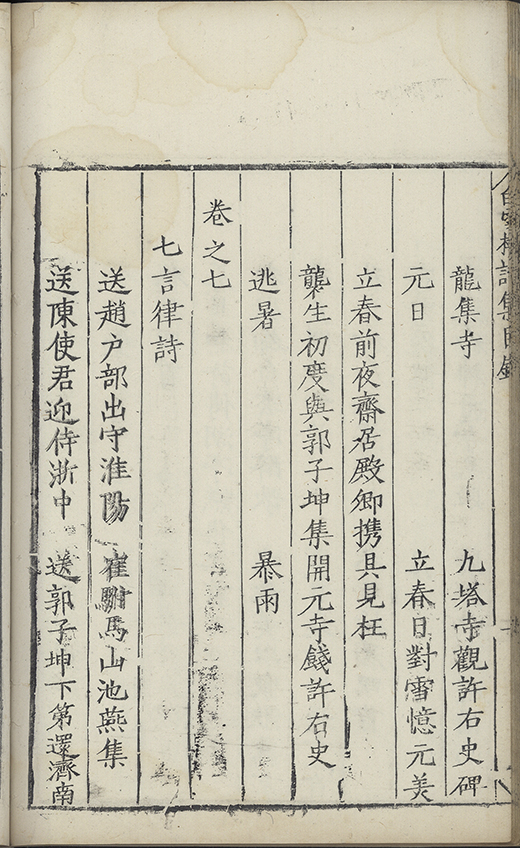 白雪樓詩集目錄
龍集寺 九塔寺觀許右史碑
元日 立春日對雪憶元美
立春前夜齋居殿卿携具見枉
襲生初度與郭子坤集開元寺餞許右史
逃暑 暴雨
卷之七
七言律詩
送趙户部出守淮陽 崔駙馬山池燕集
送陳使君迎侍浙中 送郭子坤下第還濟南